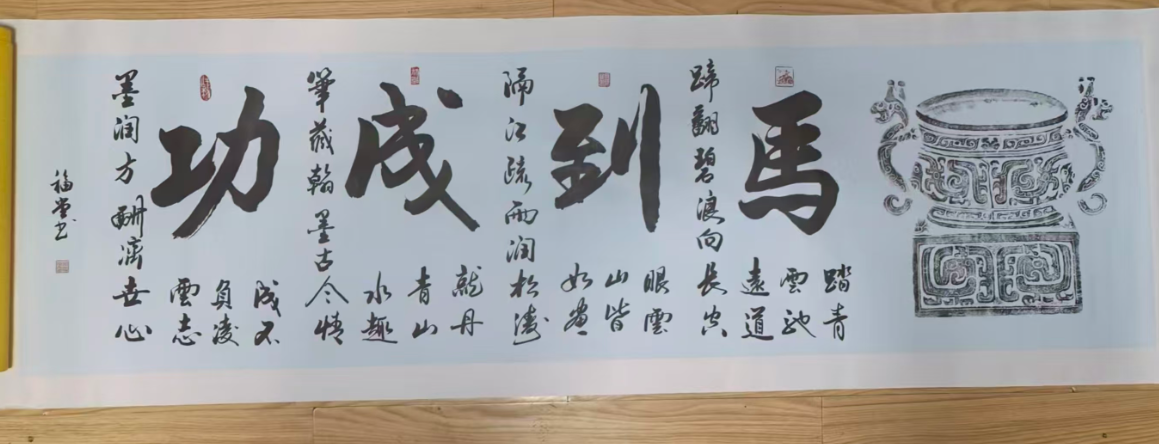 馬
踏青
雲馳
遠道
蹄翻碧浪向長空
到
眼雲
山皆
如畫
隔江疏雨润松濤
成
就丹
青山
水趣
筆藏翰墨古今情
功
成不
負凌
雲志
墨润方酬濟世心
福堂书